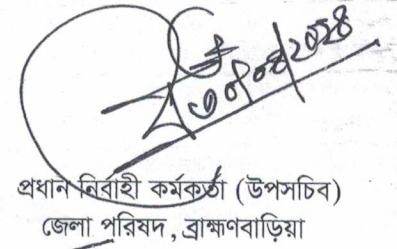 প্রধান নির্বাহী কর্মকর্তা (উপসচিব)
জেলা পরিষদ, ব্রাহ্মণবাড়িয়া